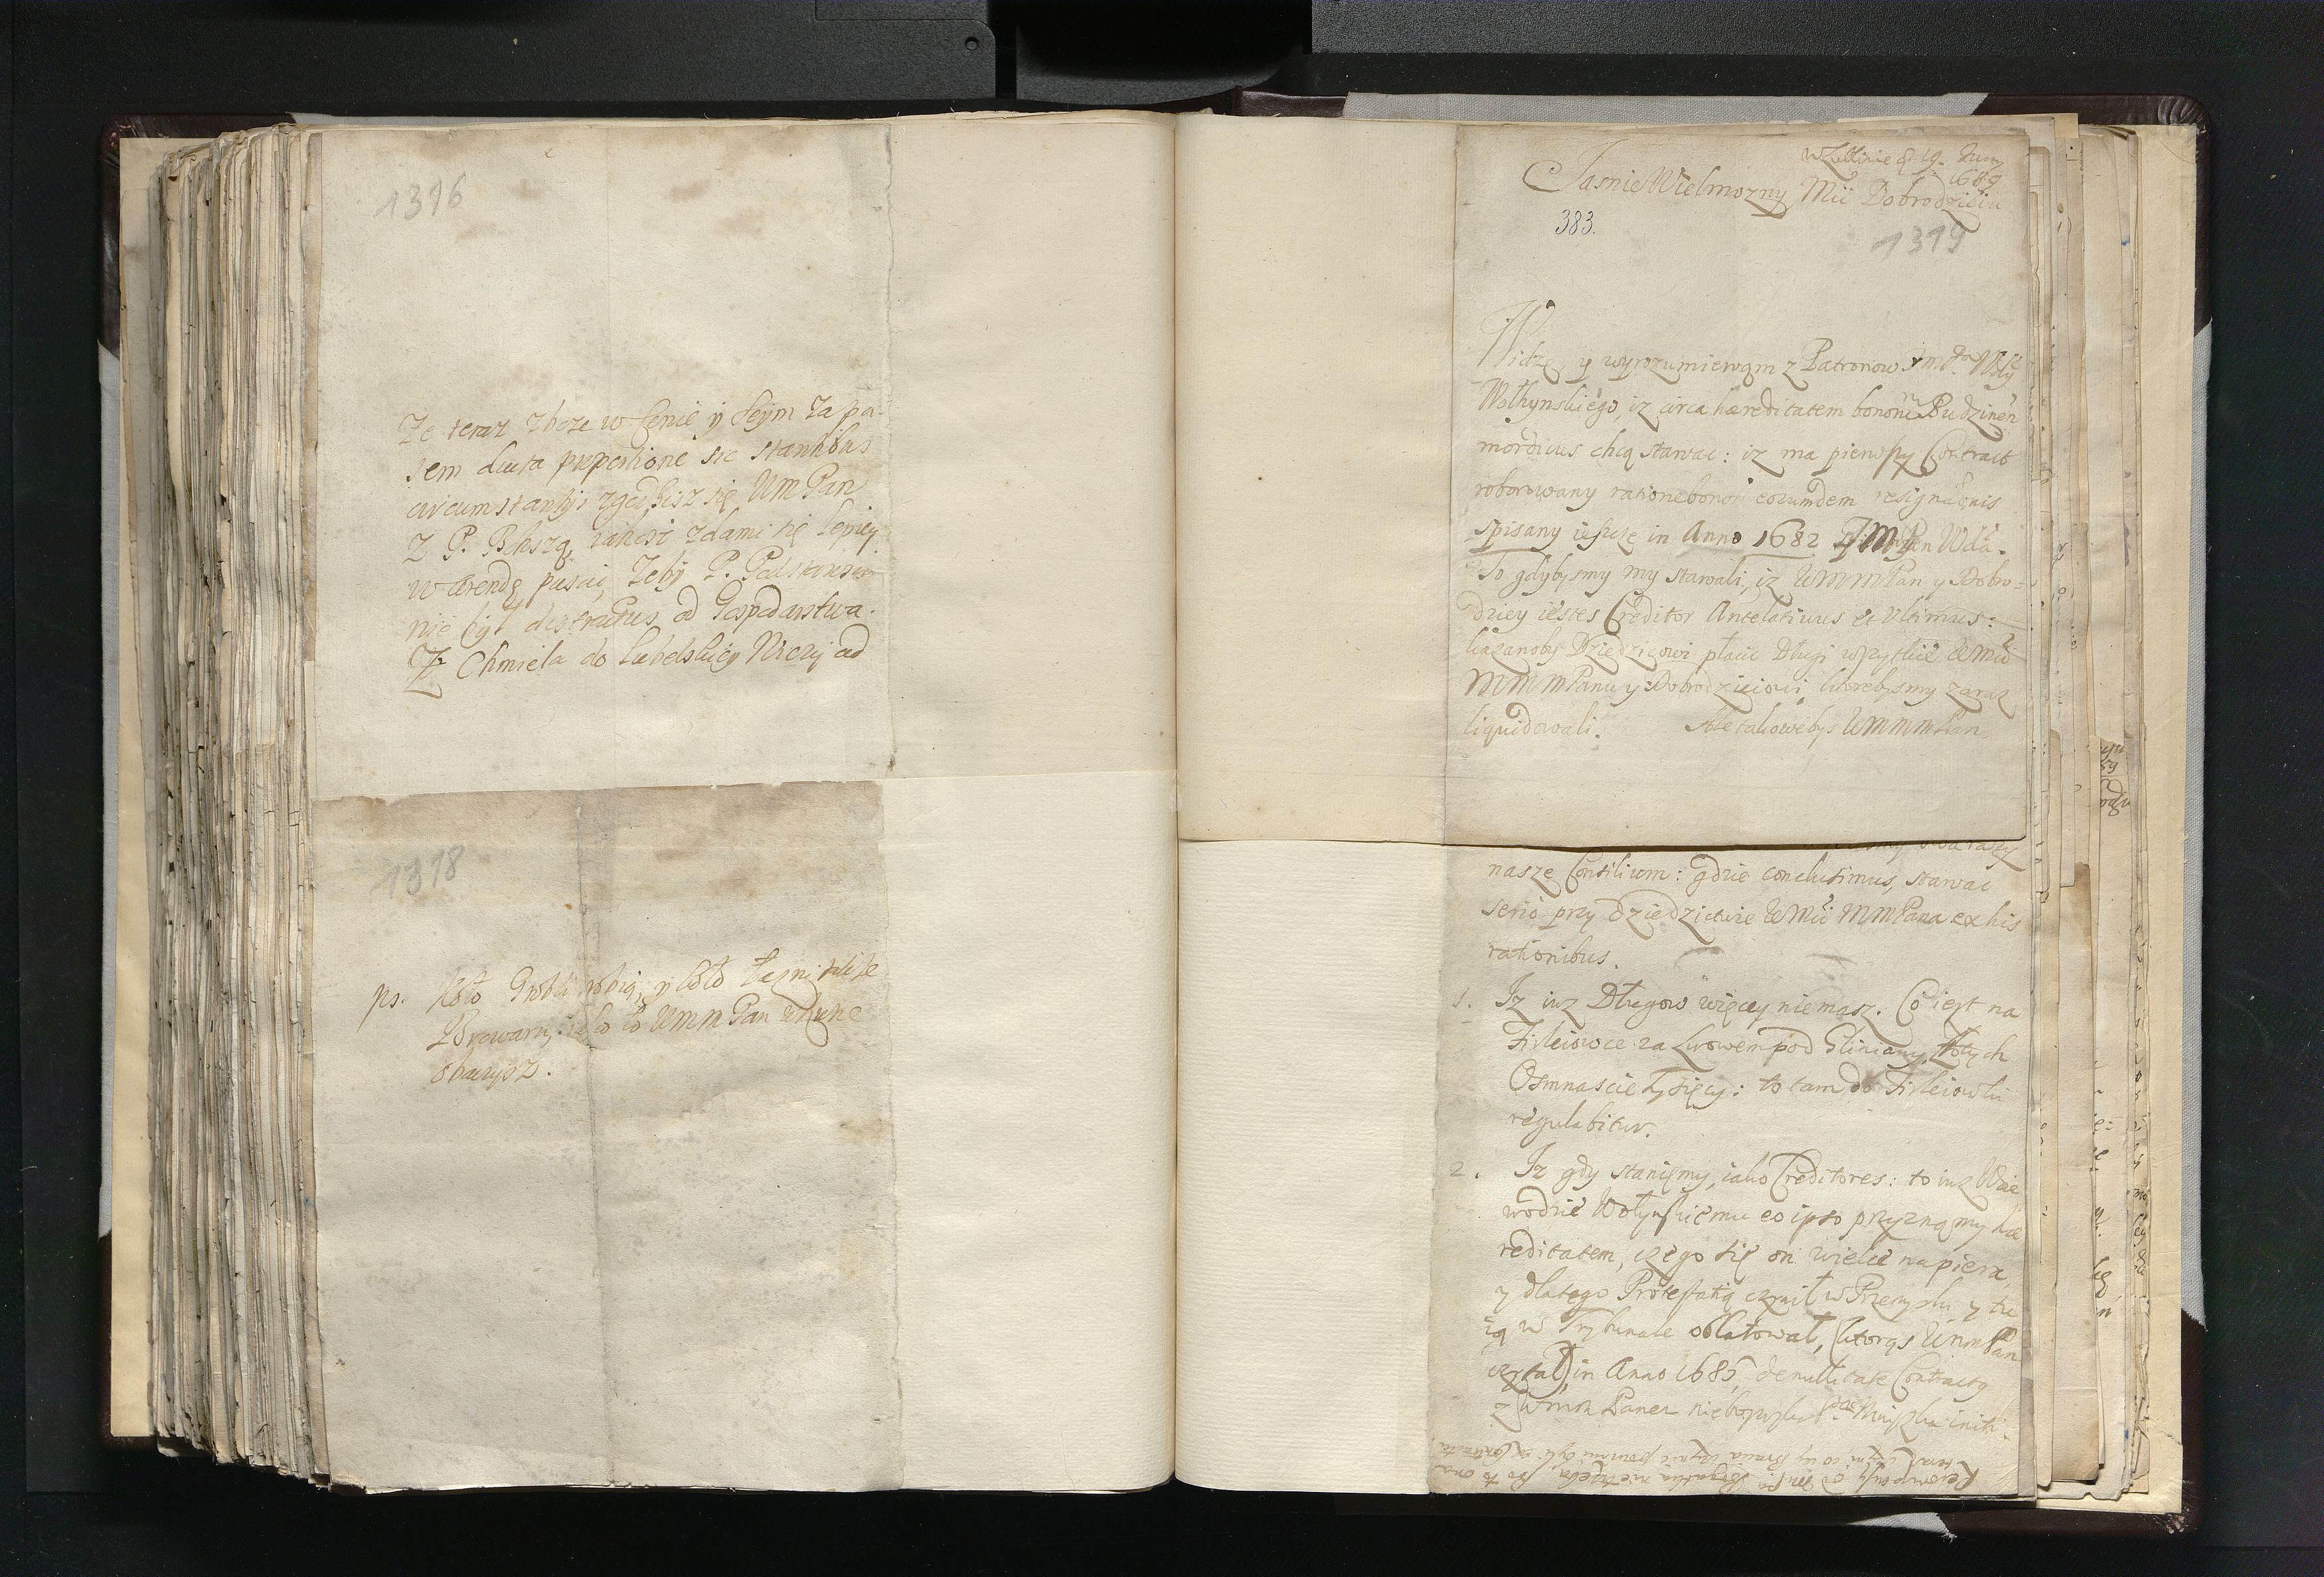 1316
Ze teraz zboze w Cenie y Seym za pa-
sem data proportione sic stantibus
circumstantijs zgodzisz się UmPan
z P. Bekszą, iakosz zda mi się lepiey
w arendę puscić, Zeby P. Podstarosci
nie był distractus od Gospodarstwa.
Ze Chmiela do Lubelskiey Niczij ad
1318
ps. Koło Grobli robią, y koło
Browaru: iako to UmmPan
obaczysz.
w Lublinie d. 19. Juny
1689
Jasnie Wielmozny Mći Dobrodzieiu
383.
1319
Widzę y wyrozumiewąm z Patronow
Wołhynskiego, iz circa hæreditatem bonorum Budzinen
mordicus chcą stawac: iz ma pierwszy Contract
roborowany ratione bonor eorumdem resignaõnis
spisany ieszcze in Anno 1682
To gdybysmy my stawali, iz UMMMPan y Dobro-
dziey iestes Creditor Antelativus et Ultimus:
kazanoby Dziedzicowi płacic Długi wszytkie WMći
MMMPanu y Dobrodzieiowi, ktorebysmy zaraz
liquidowali. Ale takowebys UMMMPan
nasze Consilium: gdzie conclusimus, stawac
serio przy dziedzictwie WMći MMPana ex his
rationibus.
1. Iz iuz Długow więcey niemasz. Co iest na
Firleiowce za Lwowem pod Gliniany, złotych
Osmnascie Tysięcy: to tam do Firleiowki
regulabitur.
2. Iz gdy staniemy, iako Creditores: to iuz Woie
wodzie Wołynskiemu eo ipso przyznąmy hæ
reditatem, czego się on wielce napiera,
y dlatego Protestatią czynił w Przemyslu y tu
ią w Trybunale oblatował, (ktorąs UmmPan
czytał) in Anno 1685, de nullitate Contractu
z UmmPanem